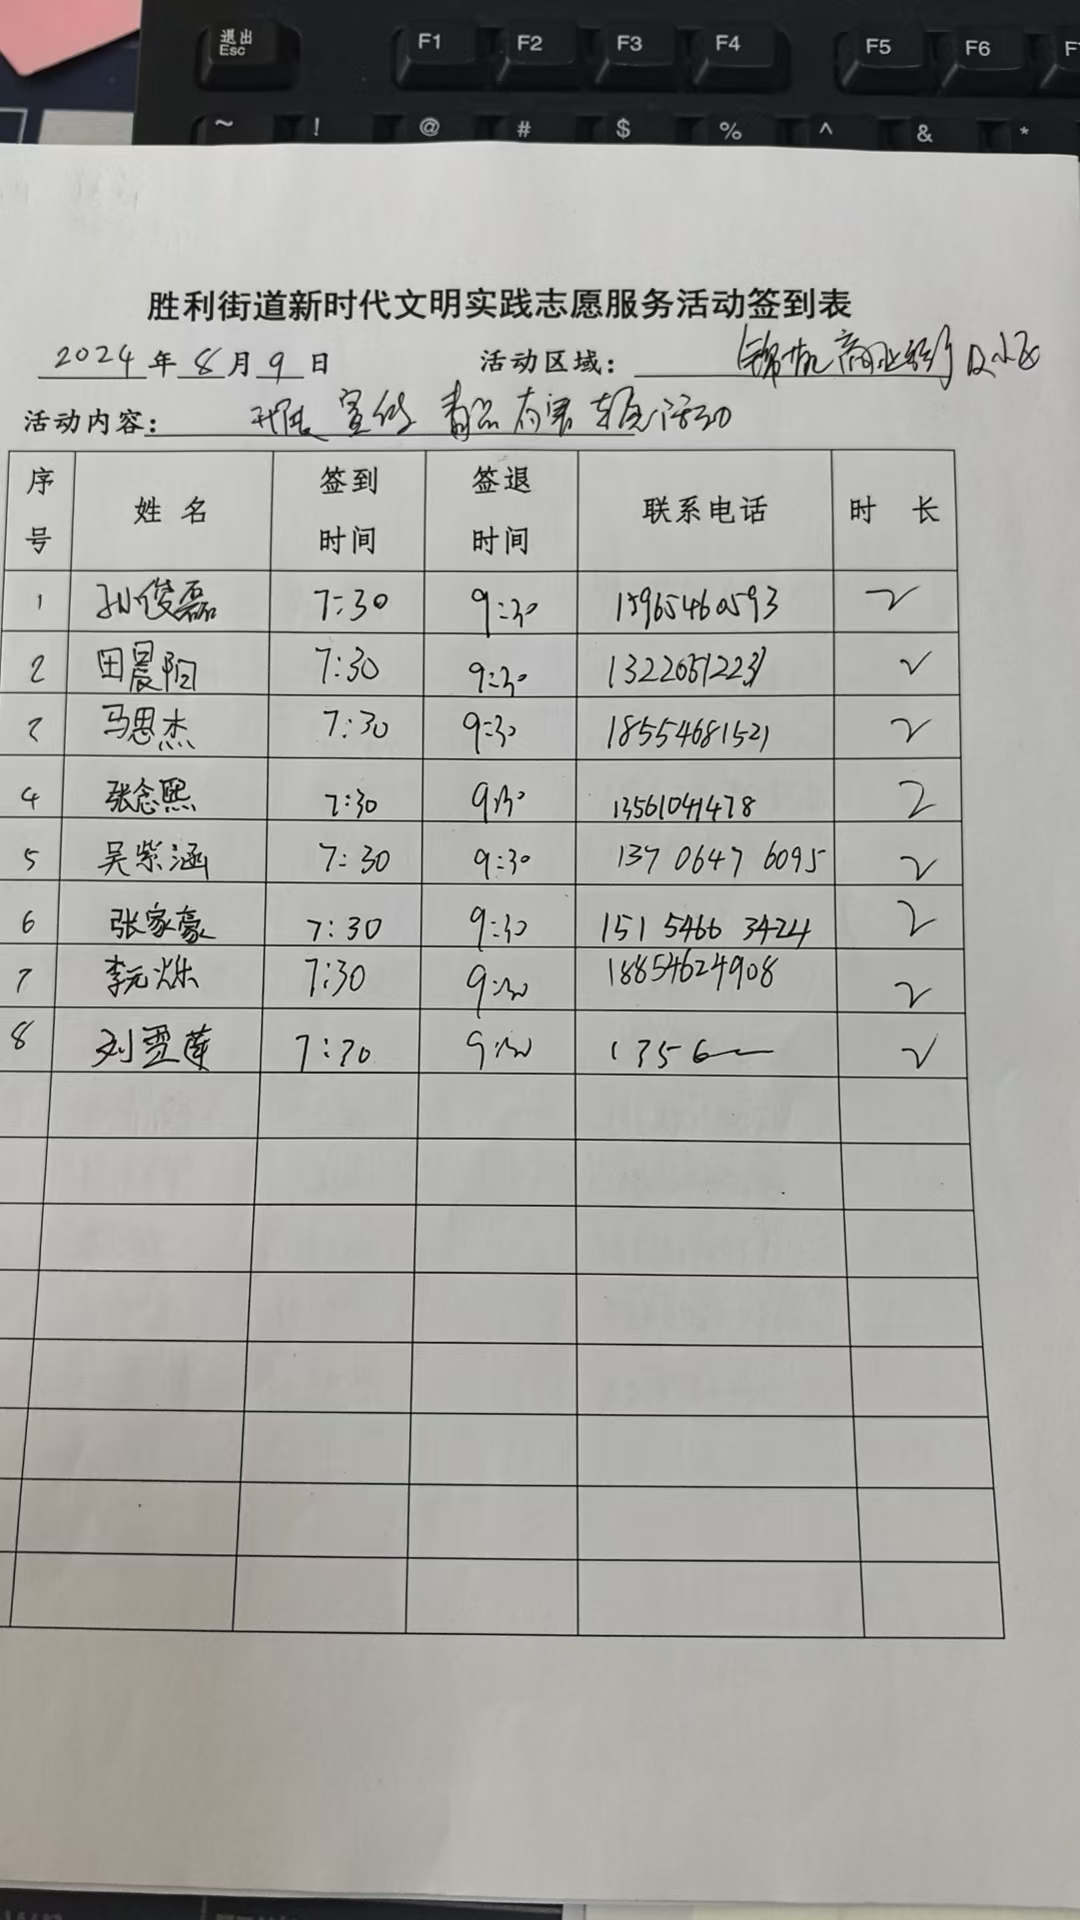 退出
Esc
F1 F2 F3 F4 F5 F6
~ ! @ # $ % ^ & *
胜利街道新时代文明实践志愿服务活动签到表
2024年8月9日 活动区域: 锦帆商业街及小区
活动内容: 开展宣传 活动
序号 姓名 签到时间 签退时间 联系电话 时长
1 孙俊磊 7:30 9:30 15965460593 2
2 田晨阳 7:30 9:30 2
3 马思杰 7:30 9:30 18554681521 2
4 张念熙 7:30 9:30 13561041478 2
5 吴紫涵 7:30 9:30 137 0647 6095 2
6 张家豪 7:30 9:30 151 5466 3424 2
7 李元烁 7:30 9:30 18854624908 2
8 刘雪莲 7:30 9:30 1356 2